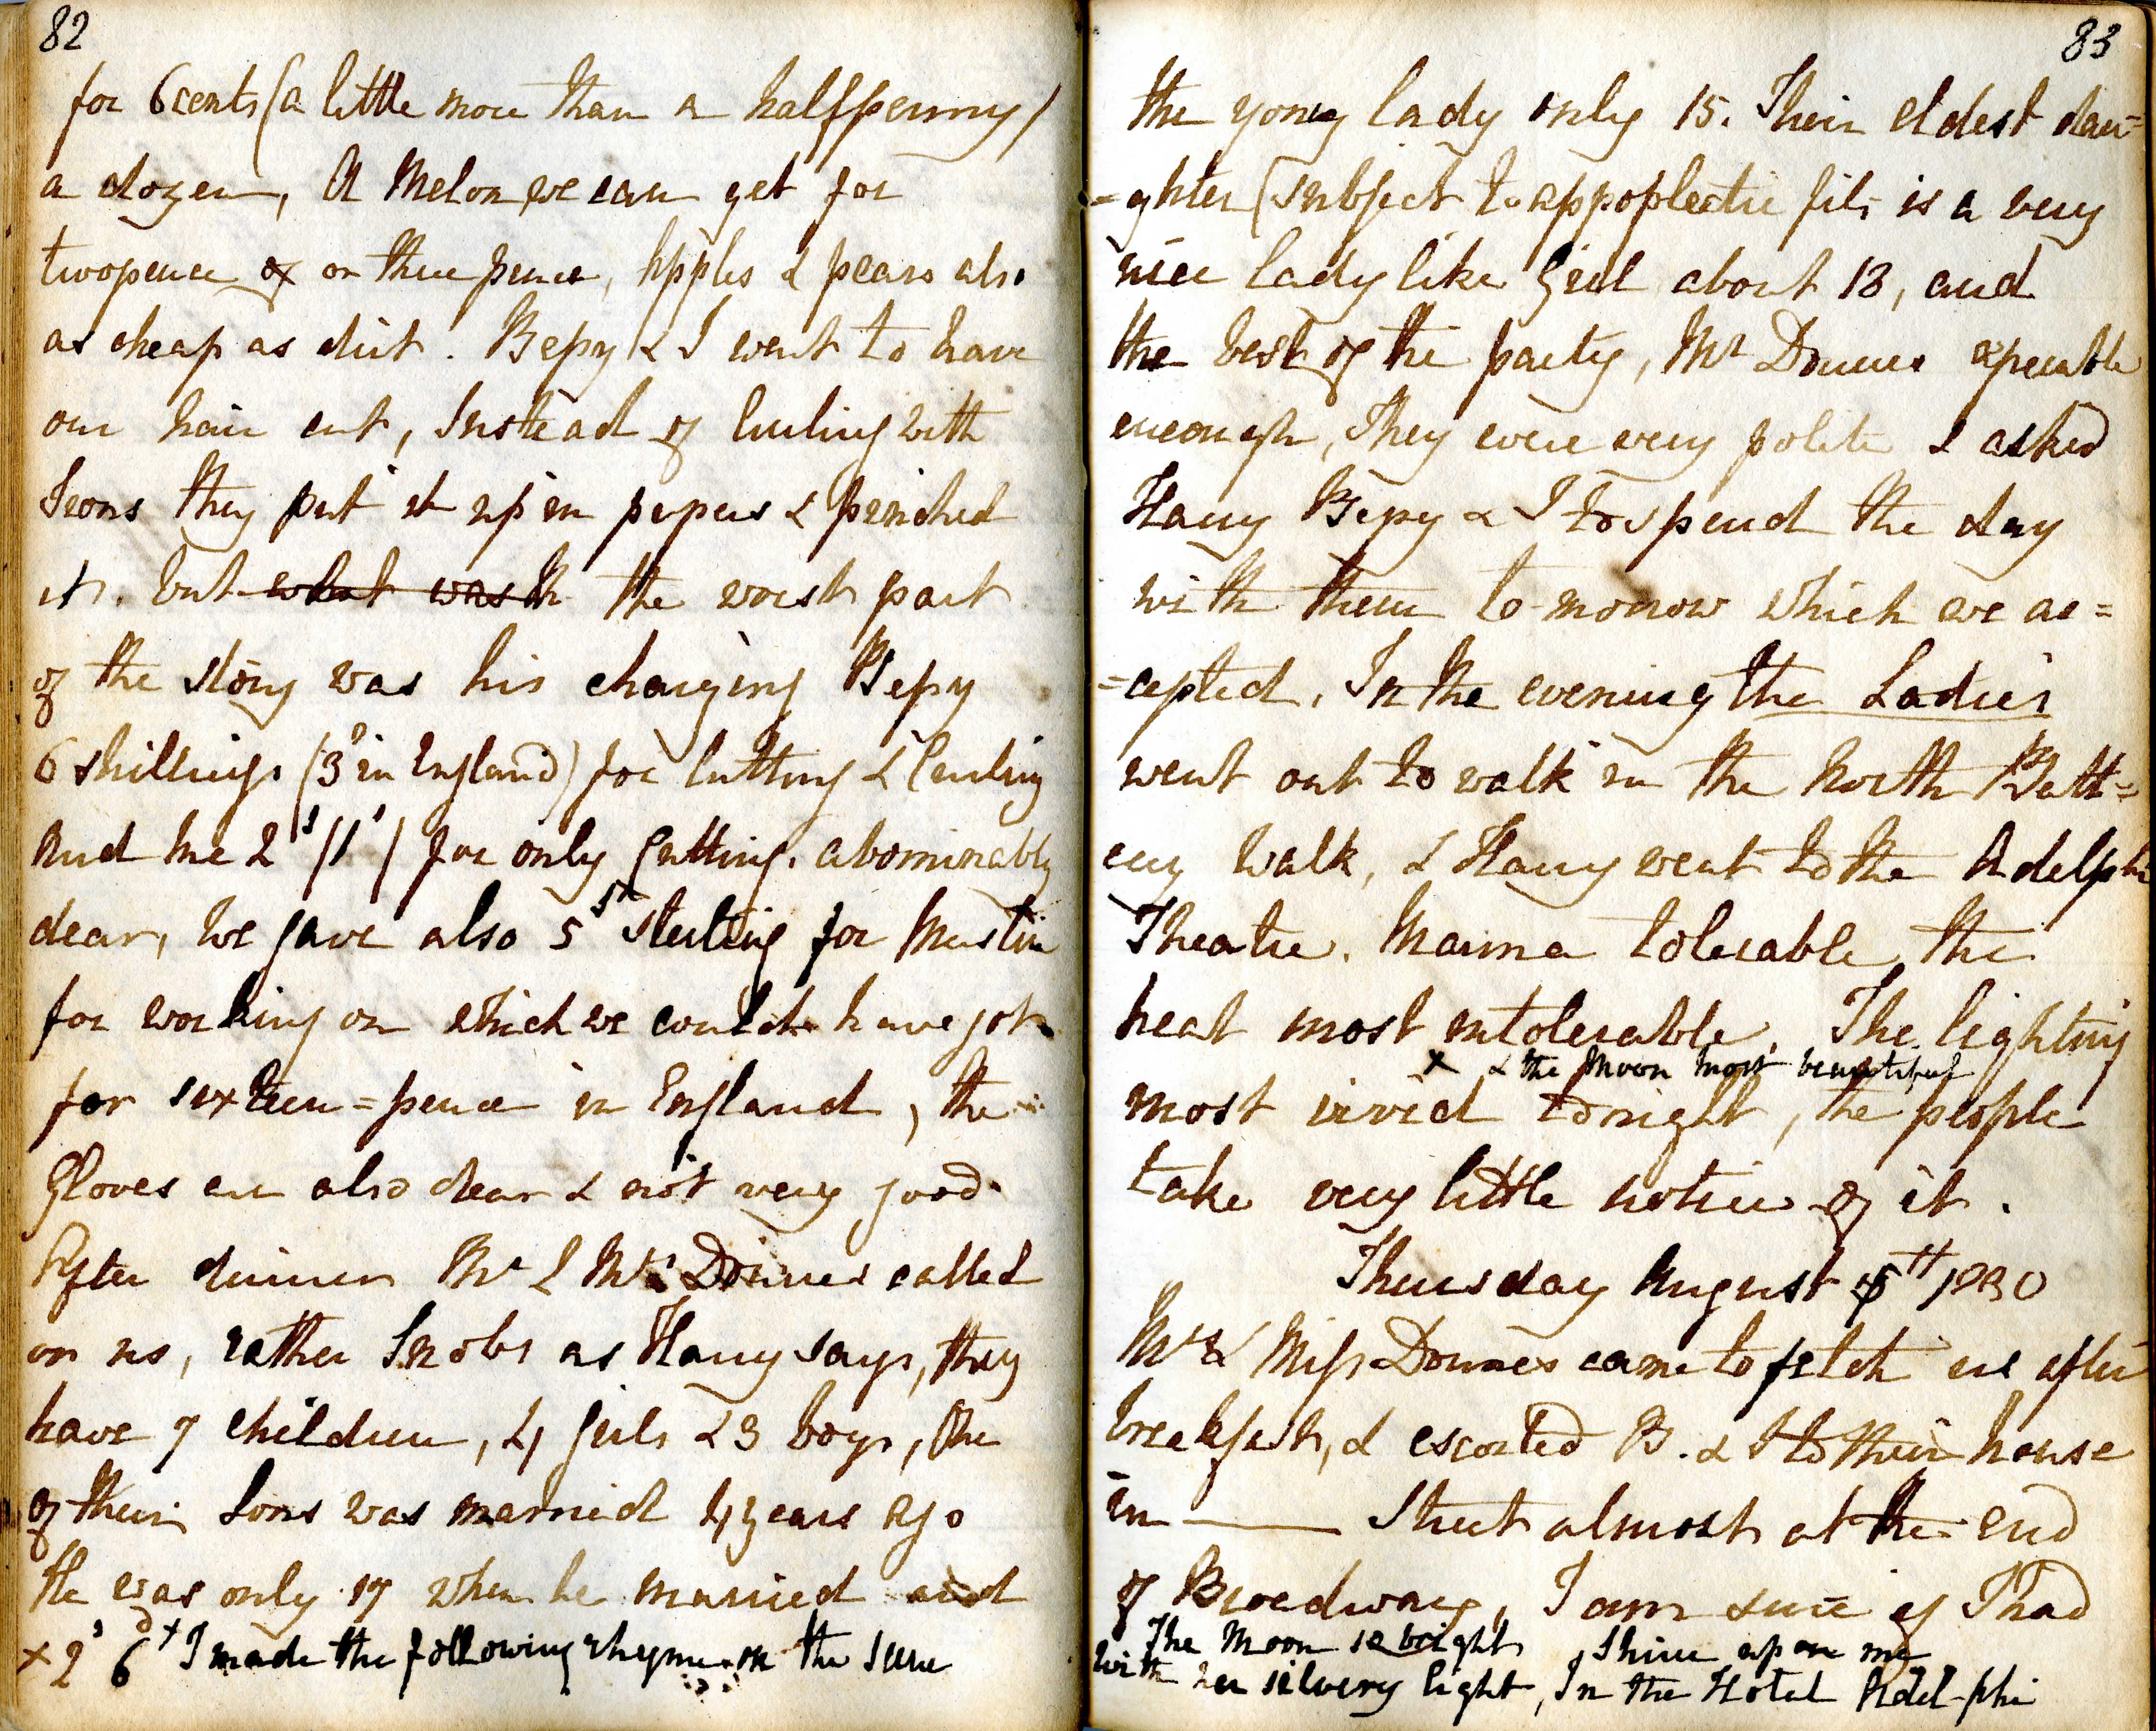 82
for 6 cents (a little more than a halfpenny)
a dozen, A Melon we can get for
twopence or three pence, Apples & pears also
as cheap as dirt. Bepy & I went to have
our hair cut, Instead of Curling with
Irons they put it up in papers & pinched
it. but what was th the worst part
of the story was his charging Bepy
6 shillings (3s in England) for Cutting & Curling
And me 2s (1s) for only Cutting. abominably
dear, We gave also 5sh sterling for Muslin
for working on which we could have got
for sixteen=pence in England, the
Gloves are also dear & not very good.
After dinner Mr & Mrs Downes called
on us, rather Snobs as Harry says, they
have 7 children, 4 girls & 3 boys, One
of their Sons was married 4 years ago
He was only 17 when he married and
x 2s 6d x I made the following rhyme on the same
83
the yong lady only 15. Their eldest dau=
=ghter (subject to appoplectic fits is a very
nice lady like Girl about 18, and
the best of the party, Mr Downes agreeable
eneough, They were very polite & asked
Harry Bepy & I to spend the day
with them to-morow which we ac=
=cepted. In the evening the Ladies
went out to walk in the North Batt=
ery Walk, & Harry went to the Adelphi
Theatre. Mamma tolerable, the
heat most intolerable. The lighting
x & the Moon most beautiful
most vivid tonight, the people
take very little notice of it.
Thursday August 5th 1830
Mr & Miss Downes came to fetch us after
breakfast, & escorted B. & I to their house
in ——— Street almost at the end
of Broadway, I am sure if I had
The Moon so bright, Shine upon me
With her silvery light, In the Hotel Adel-phi